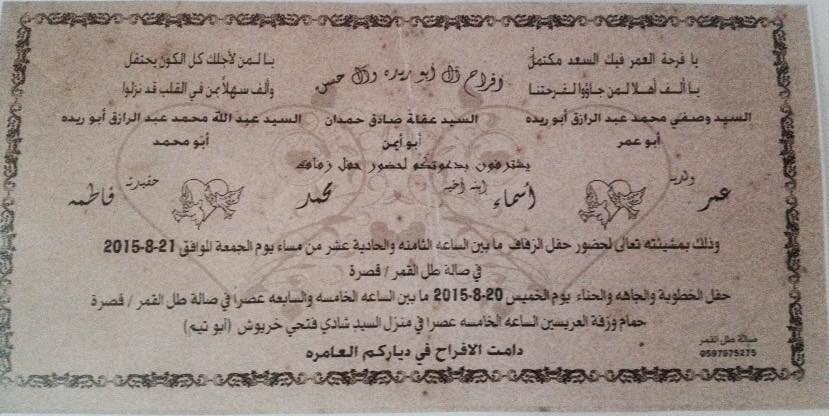 افراح آل أبو ريده وآل حسن
يا فرحة العمر فيك السعد مكتملُ يا لمن لأجلك كل الكون يحتفل
يا ألف أهلا لمن جاؤوا لفرحتنا وألف سهلاً بمن في القلب قد نزلوا
السيد وصفي محمد عبد الرازق أبو ريده السيد عقلة صادق حمدان السيد عبد الله محمد عبد الرازق أبو ريده
أبو عمر أبو أيمن أبو محمد
يتشرفون بدعوتكم لحضور حفل زفاف
ولديه عمر إبنة أخيه أسماء محمد حفيدته فاطمه
وذلك بمشيئته تعالى لحضور حفل الزفاف ما بين الساعه الثامنه والحادية عشر من مساء يوم الجمعة الموافق 21-8-2015
في صالة طل القمر / قصرة
حفل الخطوبة والجاهه والحناء يوم الخميس 20-8-2015 ما بين الساعه الخامسه والسابعه عصرا في صالة طل القمر / قصرة
حمام وزفة العريسين الساعه الخامسه عصرا في منزل السيد شادي فتحي خريوش (أبو تيم)
دامت الافراح في دياركم العامره
صالة طل القمر
0597975275